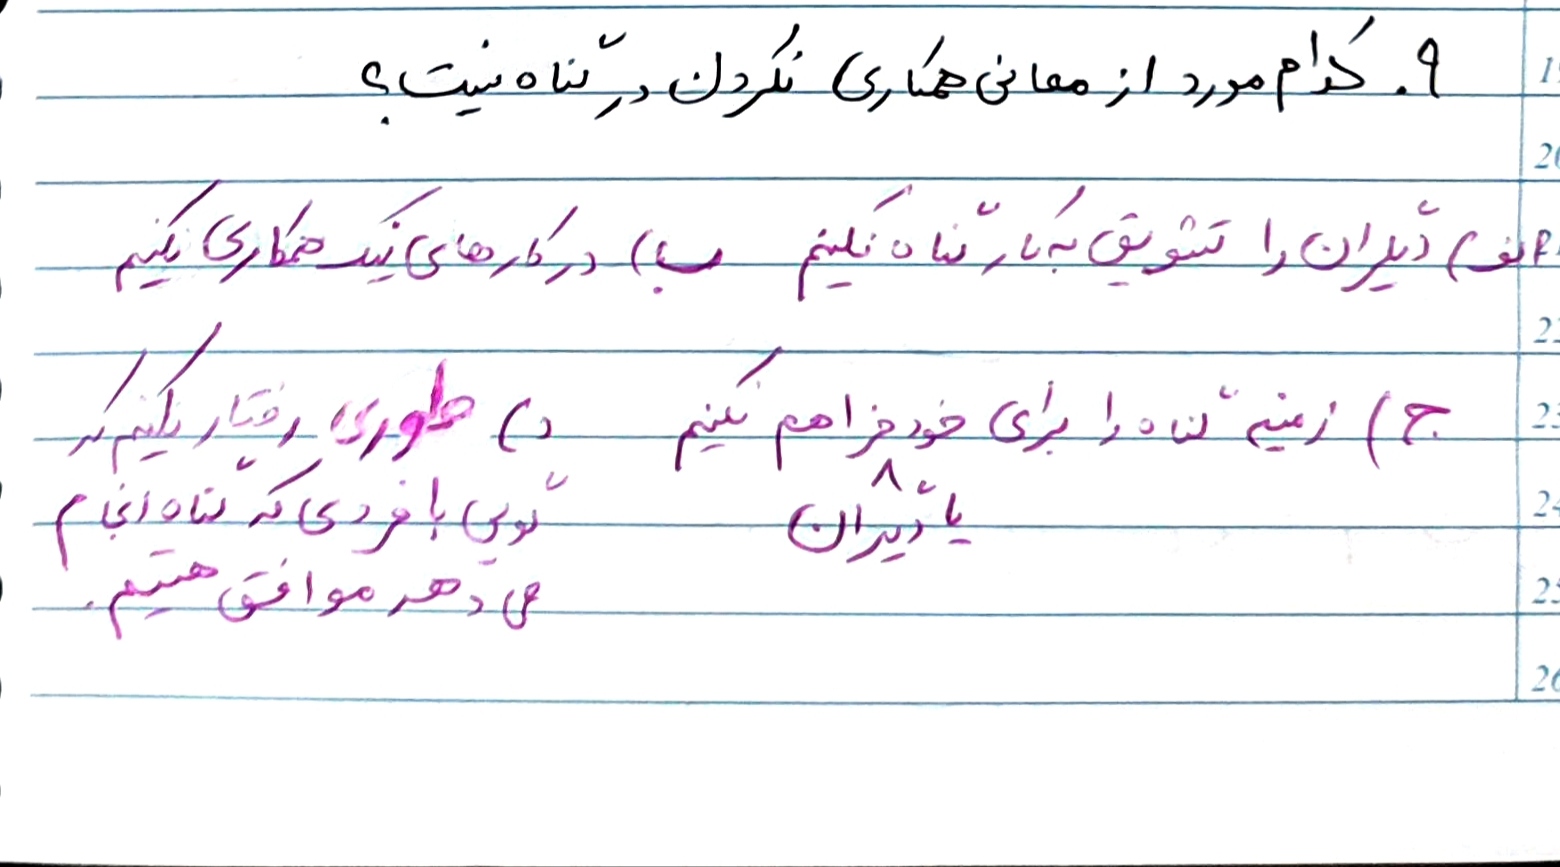 ۹. کدام مورد از معانی همکاری نکردن در گناه نیست؟
الف) دیگران را تشویق به کار گناه نکنیم ب) در کارهای نیک همکاری نکنیم
ج) زمینه گناه را برای خود فراهم نکنیم د) طوری رفتار نکنیم که
یا دیگران گویی با فردی که گناه انجام
می دهد موافق هستیم.
19
20
22
23
24
25
26